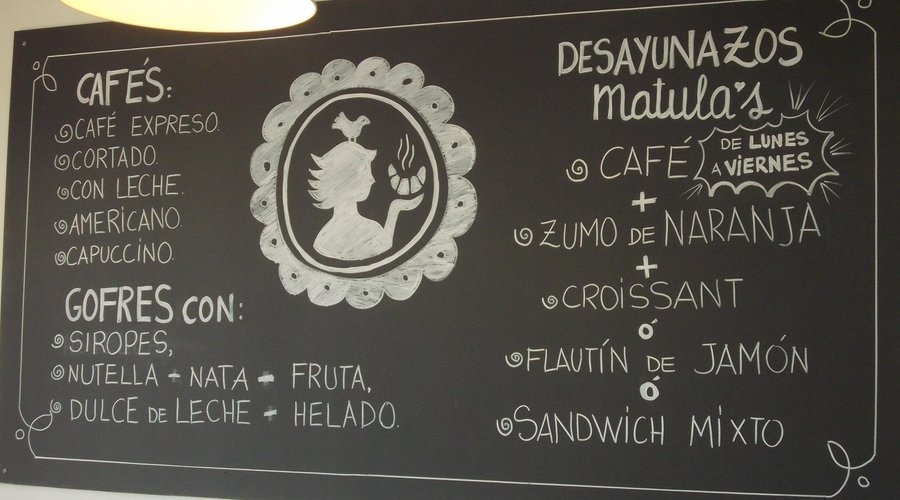 CAFÉS:
CAFÉ EXPRESO.
CORTADO.
CON LECHE.
AMERICANO.
CAPUCCINO.
GOFRES CON:
SIROPES,
NUTELLA + NATA + FRUTA,
DULCE DE LECHE + HELADO.
DESAYUNAZOS
Matula's
CAFÉ
DE LUNES
A VIERNES
+
ZUMO DE NARANJA
+
CROISSANT
Ó
FLAUTÍN DE JAMÓN
Ó
SANDWICH MIXTO